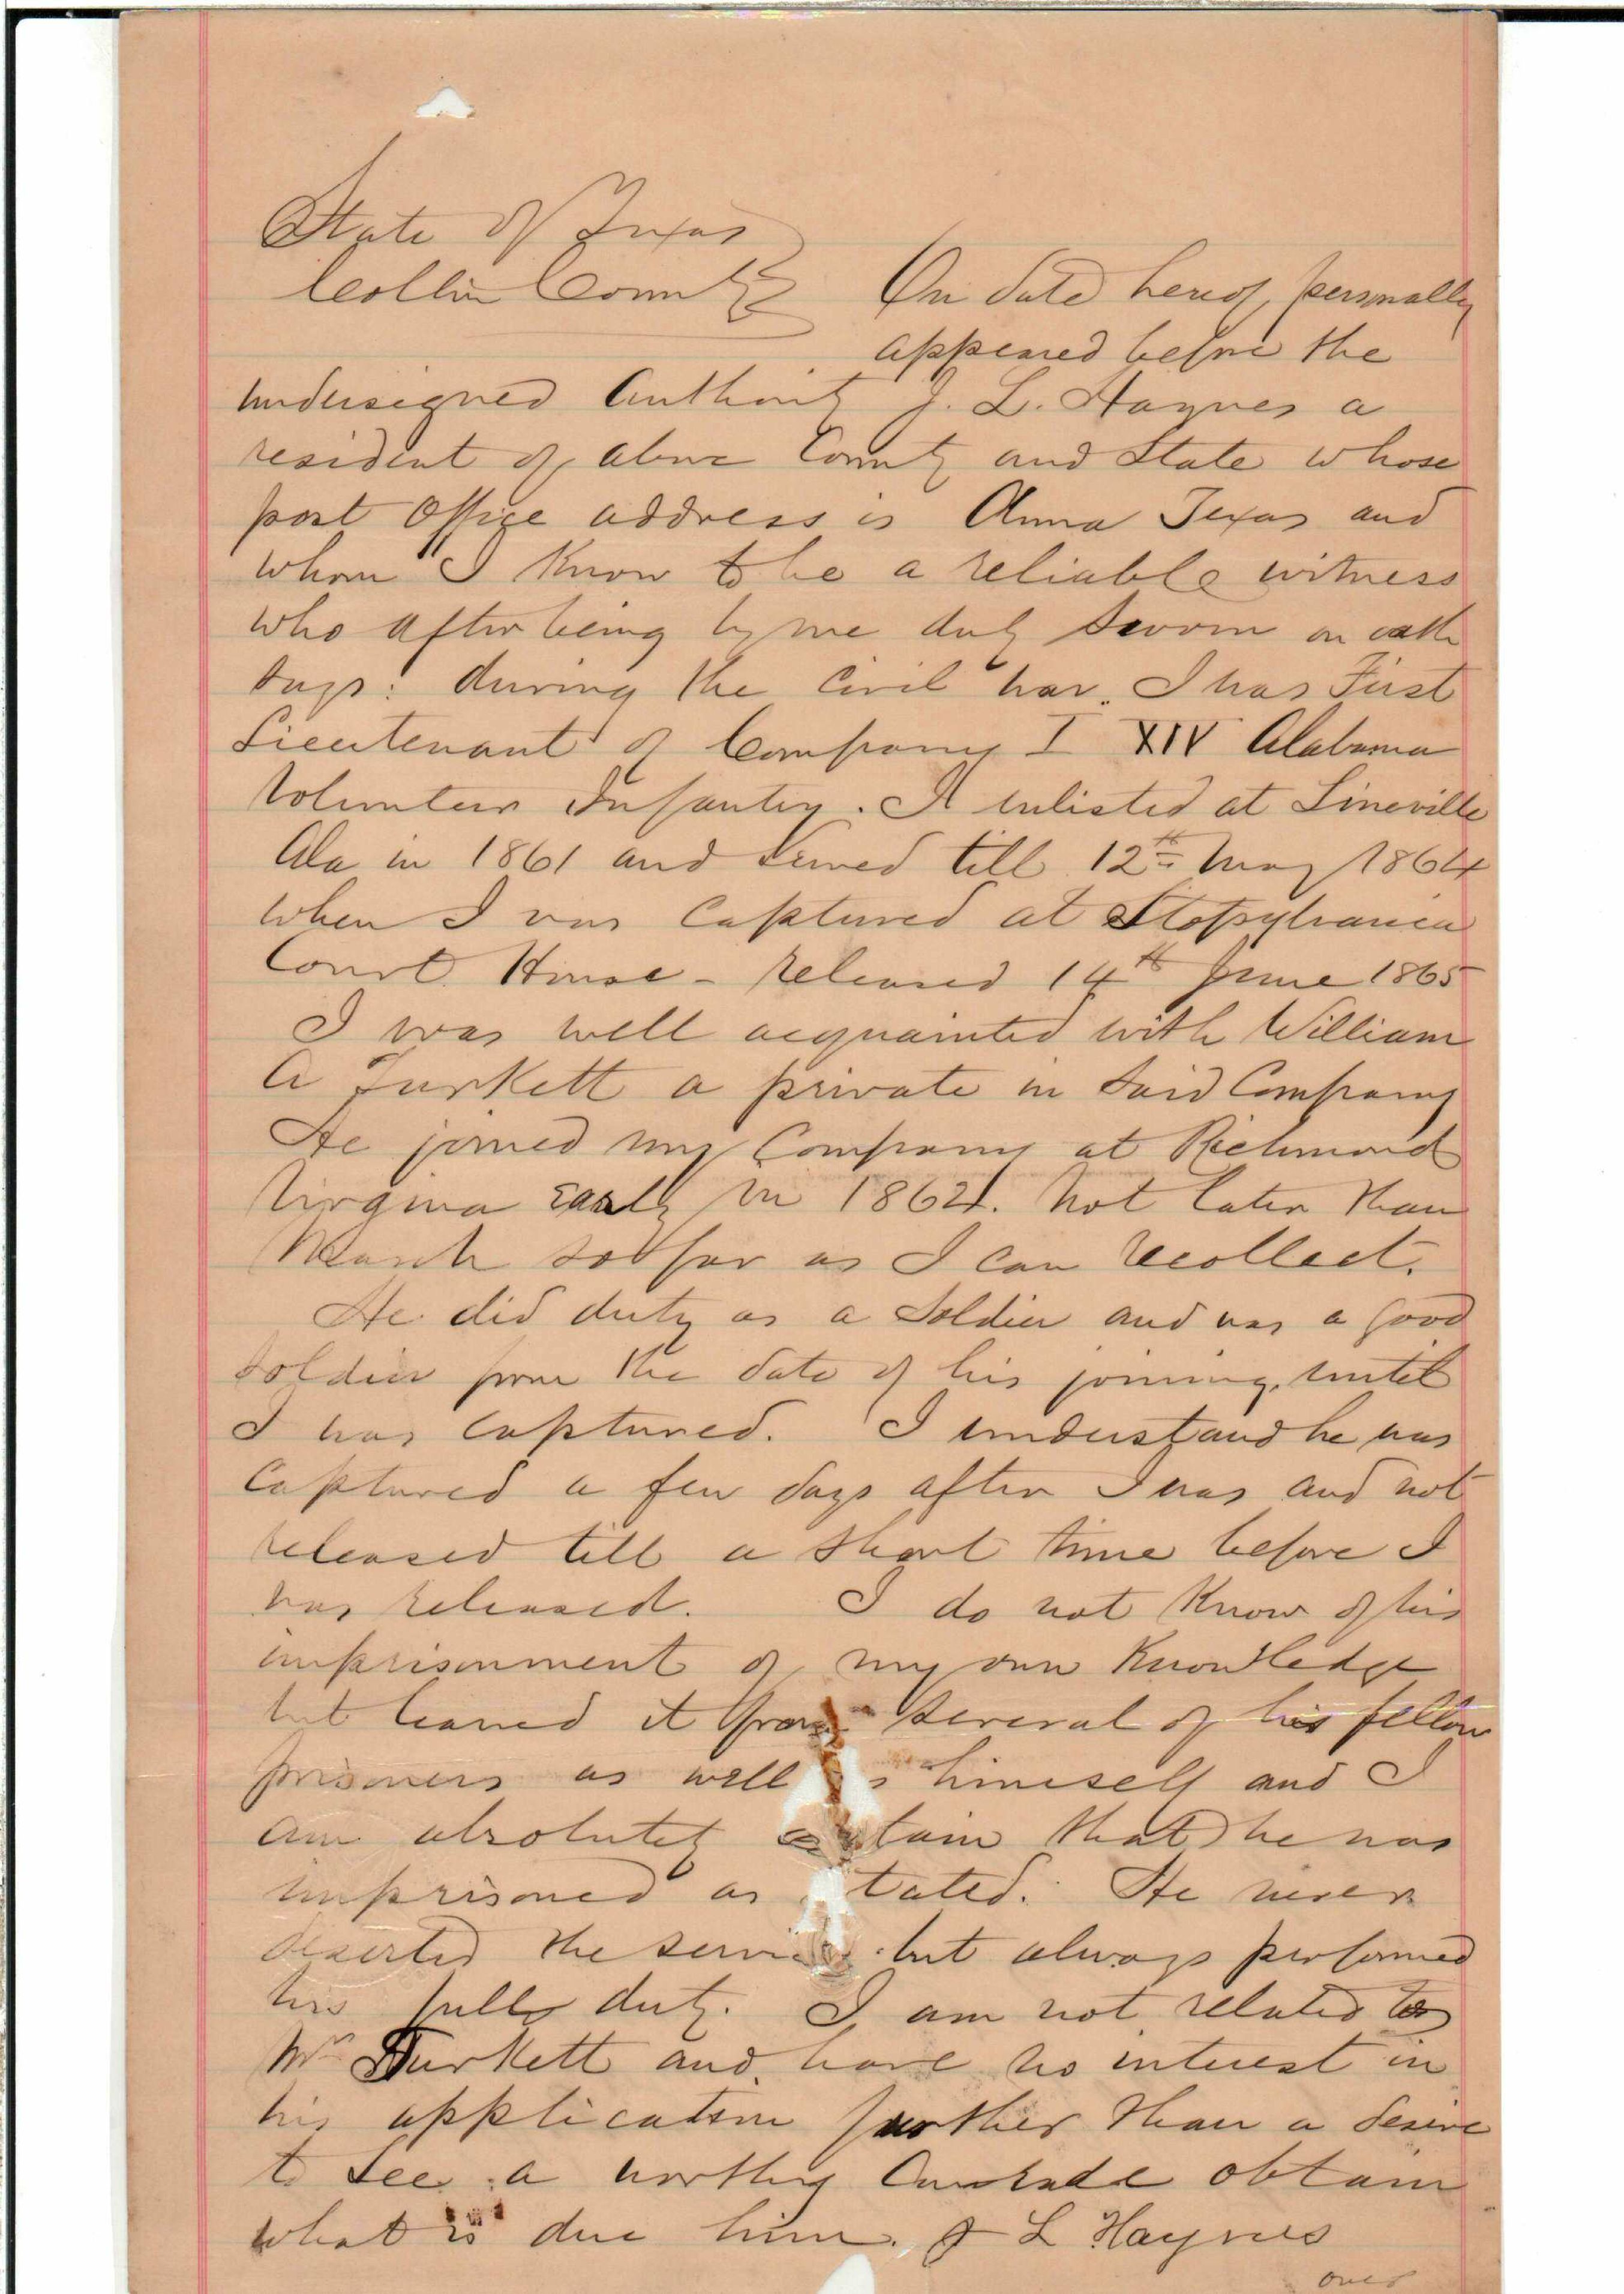 State of Texas
Collin County
On date hereof, personally
appeared before the
undersigned Authority J. L. Haynes a
resident of above County and State whose
post Office address is Anna Texas and
whom I Know to be a reliable witness
who after being by me duly sworn on oath
says: during the Civil war. I was First
Lieutenant of Company I XIV Alabama
Volunteer Infantry. I enlisted at Lineville
Ala in 1861 and served till 12th May 1864
when I was Captured at
Court House - released 14th June 1865
I was well acquainted with William
A Turkett a private in said Company
He joined my Company at Richmond
Virginia Early in 1864. Not later than
March so far as I can recollect.
He did duty as a soldier and was a good
soldier from the date of his joining, until
I was captured. I understand he was
Captured a few days after I was and not
released till a short time before I
was released. I do not Know of his
imprisonment of my own Knowledge
but learned it from several of his fellow
prisoners as well himself and I
am absolutely that he was
imprisoned as tated. He never
deserted the servi but always performed
his full duty. I am not related to
Mr Turkett and have no interest in
his application further than a desire
to see a worthy Comrade obtain
what is due him. J L Haynes
over